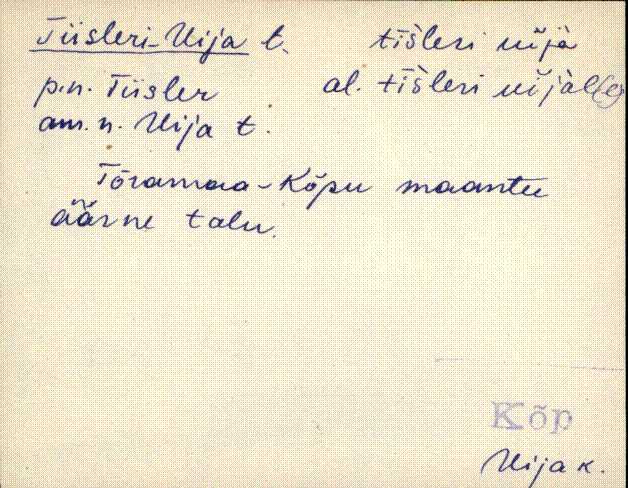 Tiisleri-Uija t. tīšleri uĭjà
p.n. Tiisler al. tīšleri uĭjàl(e)
am. n. Uija t.
Tõramaa-Kõpu maantee
äärne talu.
Kõp
Uija k.